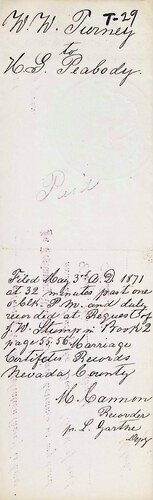 T-29
W. W. Turney
to
H. G. Peabody.
Paid
Filed May 3rd A.D. 1871
at 32 minutes past one
o'Clk. P.M. and duly
recorded at Request of
J. W. Stump in Book 2
page 55 56 Marriage
Certifctes Records
Nevada County
M. Cannon
Recorder
p. L. Garthe
Dpy